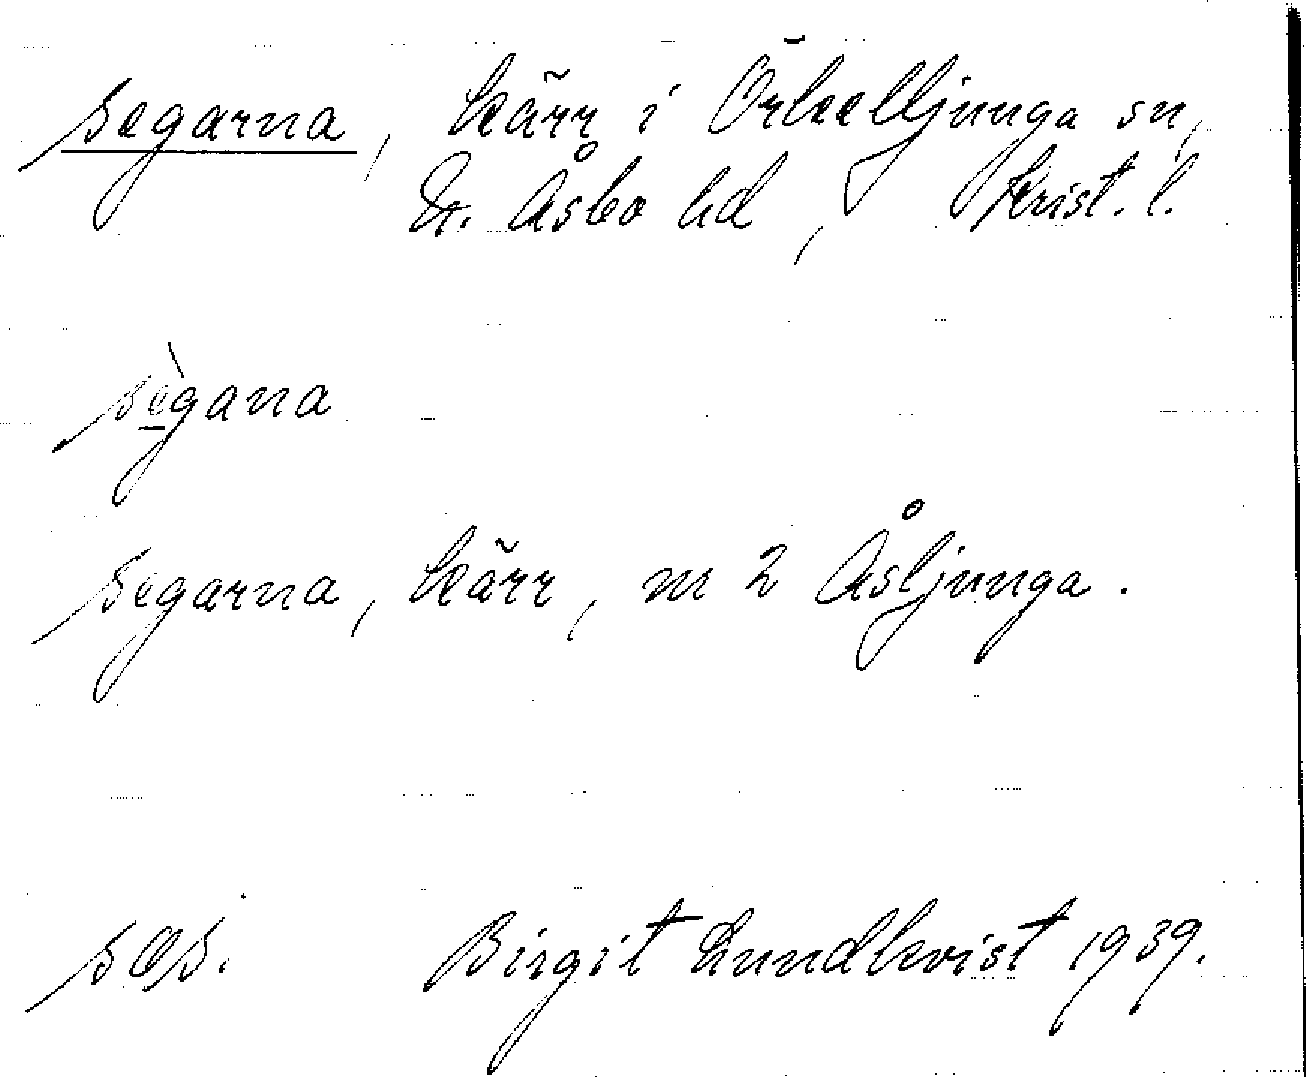 segarna, kärr i Örkelljunga sn,
N. Åsbo hd, Krist. l.
sègana
segarna, kärr, nr 2 Åsljunga.
Birgit Lundkvist 1939.